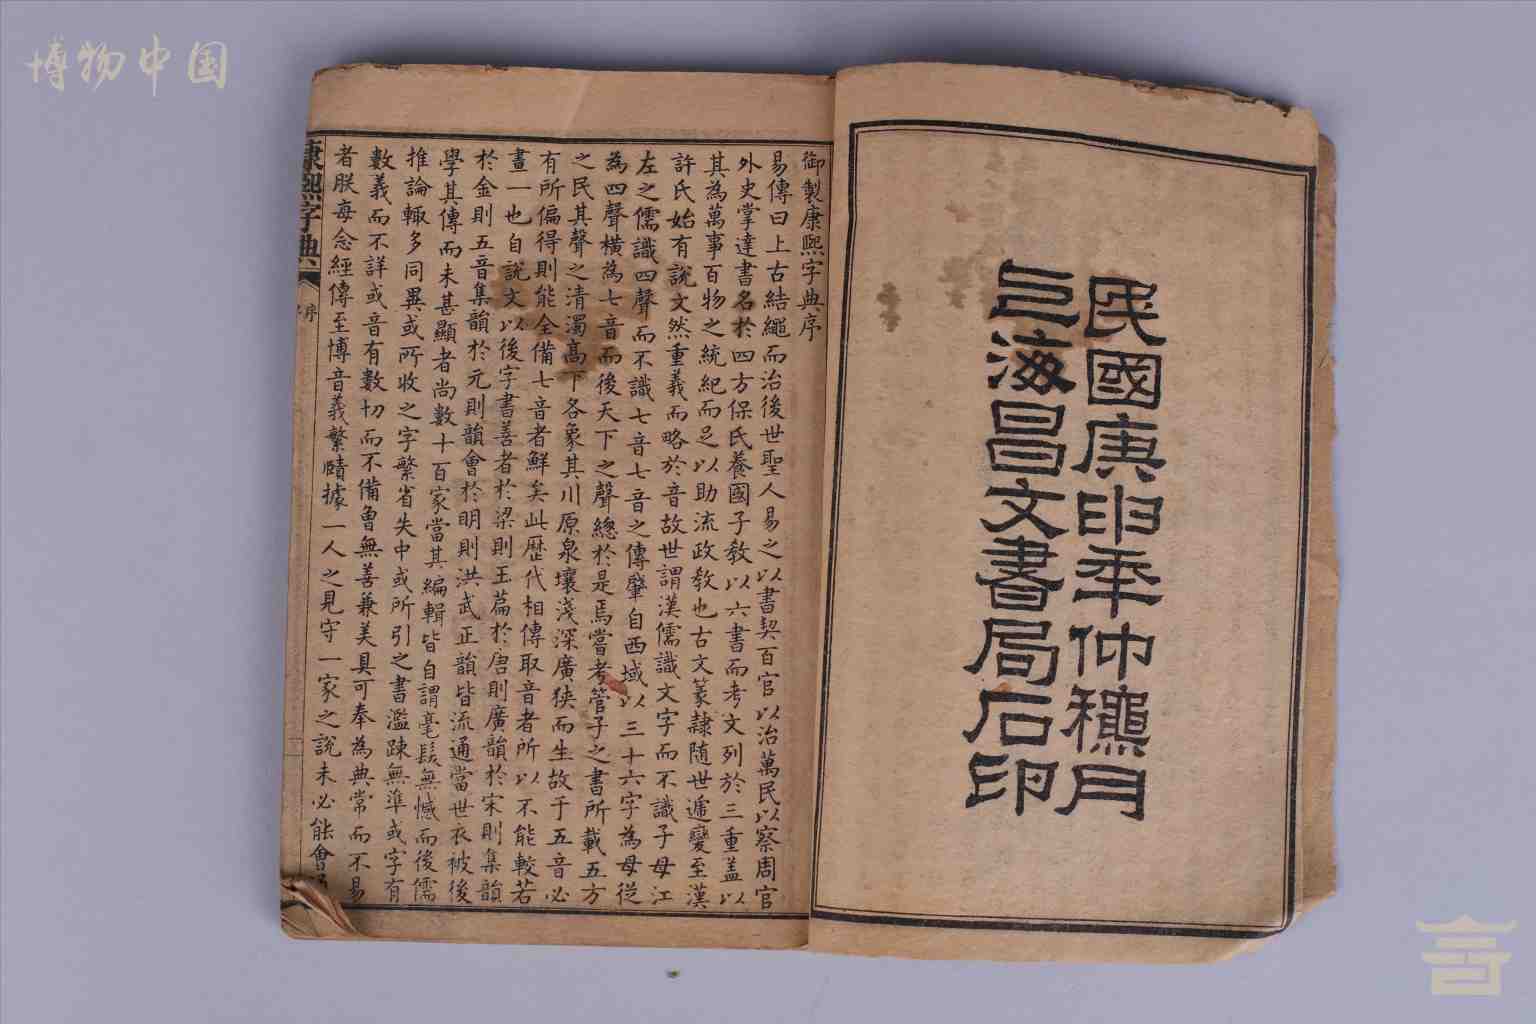 博物中国
民國庚申年仲穐月
上海昌文書局石印
御製康熙字典序
易傳曰上古結繩而治後世聖人易之以書契百官以治萬民以察周官
外史掌達書名於四方保氏養國子教以六書而考文列於三重盖以
其為萬事百物之統紀而足以助流政教也古文篆隸随世遞變至漢
許氏始有說文然重義而略於音故世謂漢儒識文字而不識子母江
左之儒識四聲而不識七音七音之傳肇自西域以三十六字為母從
為四聲横為七音而後天下之聲總於是焉嘗考管子之書所載五方
之民其聲之清濁高下各象其川原泉壤淺深廣狹而生故于五音必
有所偏得則能全備七音者鮮矣此歷代相傳取音者所以不能較若
畫一也自說文以後字書善者於梁則玉篇於唐則廣韻於宋則集韻
於金則五音集韻於元則韻會於明則洪武正韻皆流通當世衣被後
學其傳而未甚顯者尚數十百家當其編輯皆自謂毫髮無憾而後儒
推論輒多同異或所收之字繁省失中或所引之書濫踈無準或字有
數義而不詳或音有數切而不備曾無善兼美具可奉為典常而不易
者朕每念經傳至博音義繁賾據一人之見守一家之說未必能會
康熙字典
序